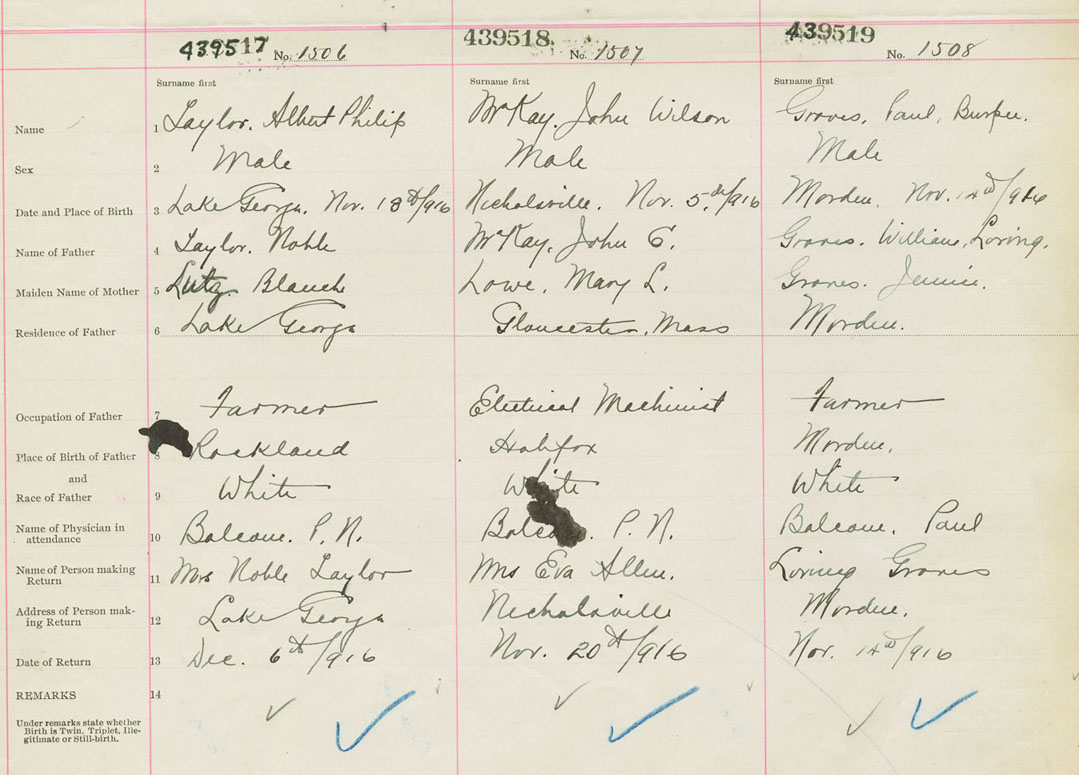 439517 No. 1506 439518 No. 1507 439519 No. 1508
Surname first Surname first Surname first
Name 1 Taylor, Albert Philip McKay, John Wilson Graves, Paul, Burpee.
Sex 2 Male Male Male
Date and Place of Birth 3 Lake George, Nov. 18th/916 Nicholsville, Nov. 5th/916 Morden, Nov. 14th/916
Name of Father 4 Taylor, Noble McKay, John C. Graves, William, Loring.
Maiden Name of Mother 5 Lutz, Blanch Lowe, Mary L. Graves, Jennie.
Residence of Father 6 Lake George Gloucester, Mass Morden.
Occupation of Father 7 Farmer Electrical Machinist Farmer
Place of Birth of Father 8 Rockland Halifax Morden.
and
Race of Father 9 White White White
Name of Physician in
attendance 10 Balcom, P. N. Balcom, P. N. Balcom, Paul
Name of Person making
Return 11 Mrs Noble Taylor Mrs Eva Allen. Loring Graves
Address of Person mak-
ing Return 12 Lake George Nicholsville Morden.
Date of Return 13 Dec. 6th/916 Nov. 20th/916 Nov. 14th/916
REMARKS 14
Under remarks state whether
Birth is Twin, Triplet, Ille-
gitimate or Still-birth.